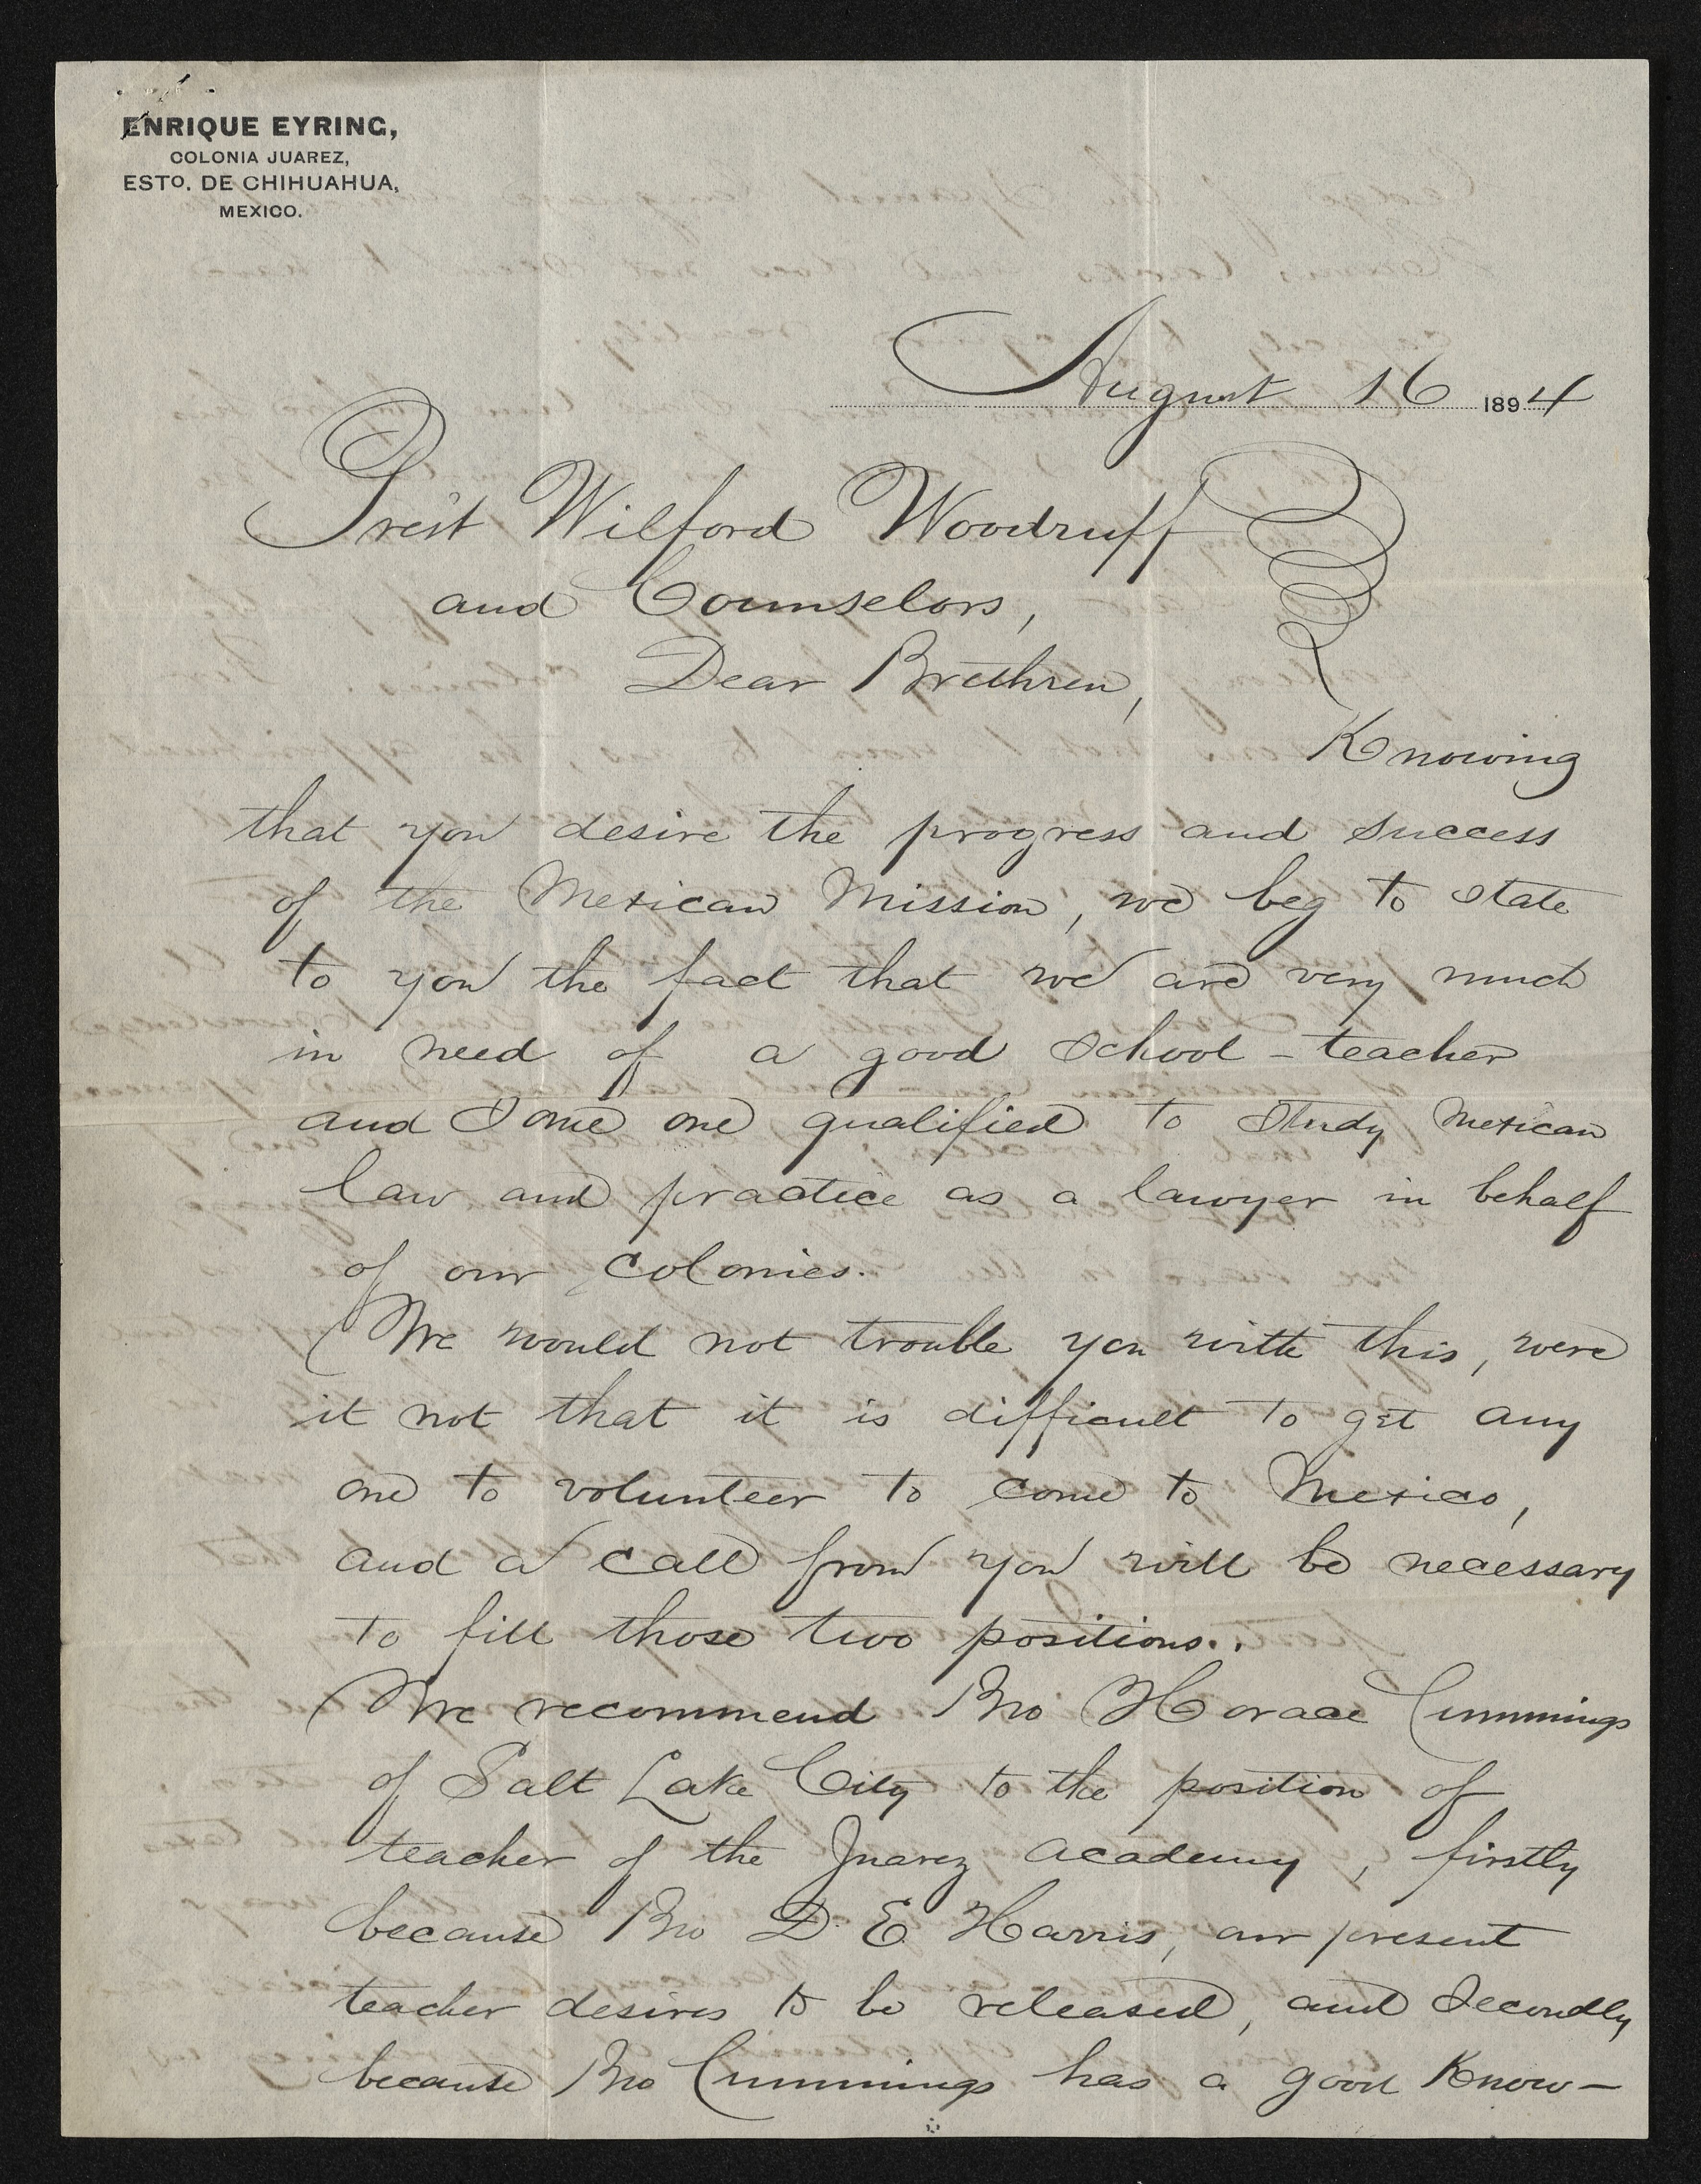 ENRIQUE EYRING,
COLONIA JUAREZ,
ESTO. DE CHIHUAHUA,
MEXICO.
August 16 1894
Prest Wilford Woodruff
and Counselors,
Dear Brethren,
Knowing
that you desire the progress and success
of the Mexican Mission, we beg to state
to you the fact that we are very much
in need of a good School-teacher
and Some one qualified to Study Mexican
law and practice as a lawyer in behalf
of our Colonies.
We would not trouble you with this, were
it not that it is difficult to get any
one to volunteer to come to Mexico,
and a call from you will be necessary
to fill those two positions..
We recommend Bro Horace Cummings
of Salt Lake City to the position of
teacher of the Juarez Academy, firstly
because Bro D. E. Harris, our present
teacher desires to be released, and Secondly
because Bro Cummings has a good Know-